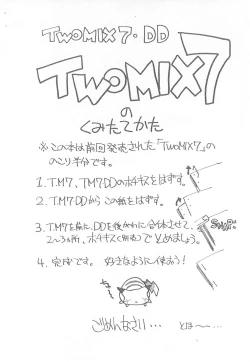 TWOMIX7・DD
TWOMIX7
の
くみたてかた
※この本は前回発売された「TWOMIX7」の
のこり半分です。
1. T.M7、TM7DDのホチキスをはずす。
2. T.M7DDからこの紙をはずす。
3. T.M7を前に、DDを後がわに合体させて、
2〜3ヵ所、ホチキス(別売)でとめましょう。
4. 完成です。好きなように使おう!
ごめんなさい…
とほ〜…